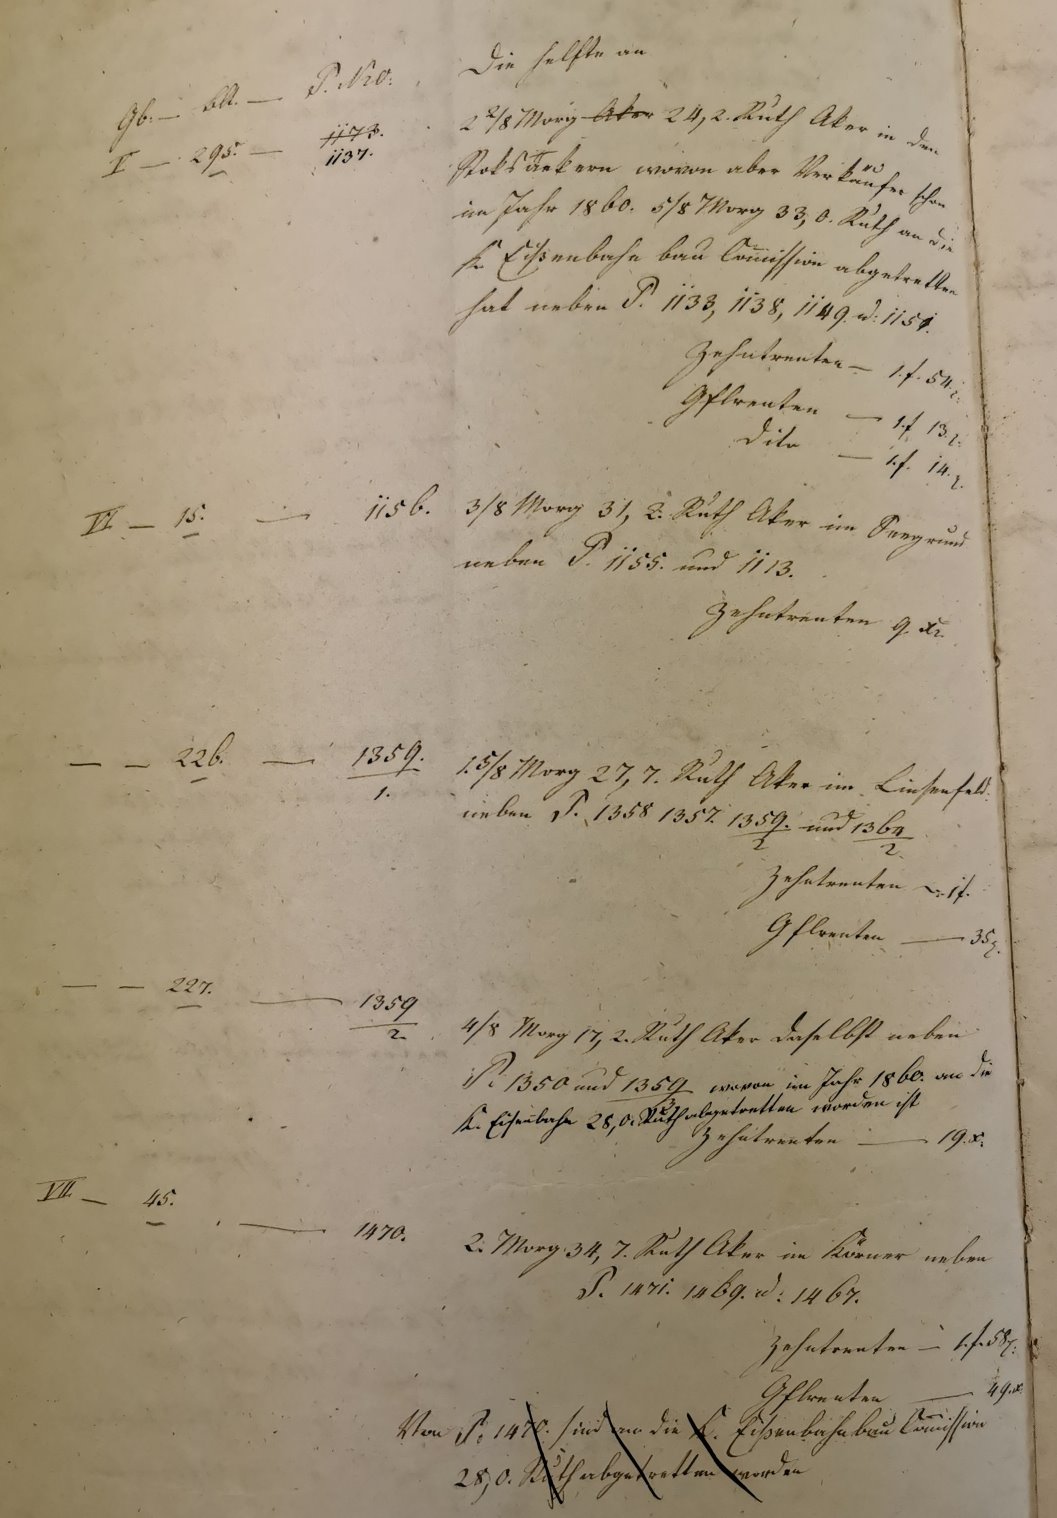 Die helfte an
Gb. — bll. — P. Nro:
2 2/8 Morg Aker 24,2. Ruth Aker in den
V — 295. — 1173.
1137.
Stoksäckern wovon aber Verkäufer schon
im Jahr 1860. 5/8 Morg 33,0. Ruth an die
K. Eißenbahn bau Com̅ission abgetretten
hat neben P. 1133, 1138, 1149. u: 1151.
Zehntrenten — 1.f. 54.x.
Gflrenten — 1.f 13.x.
Dito — 1.f. 14.x.
VI — 15. — 1156. 3/8 Morg 31,2. Ruth Aker im Seegrund
neben P. 1155. und 1113.
Zehntrenten 9. xr.
— — 226. — 1359./1. 1.5/8 Morg 27,7. Ruth Aker im Linsenfeld.
neben P. 1358 1357. 1359./2 und 1360/2.
Zehntrenten — 1f.
Gflrenten — 35x.
— — 227. — 1359/2. 4/8 Morg 17,2. Ruth Aker daselbst neben
P. 1350 und 1359/3 wovon im Jahr 1860. an die
K. Eisenbahn 28,0. Ruth abgetretten worden ist
Zehntrenten — 19.x.
VII. — 45. — 1470. 2. Morg 34,7. Ruth Aker im Körner neben
P. 1471. 1469. u: 1467.
Zehntrenten — 1.f.58x.
Gflrenten — 49.x.
Von P. 1470. sind an die K. Eißenbahnbau Com̅ission
28,0. Ruth abgetretten worden